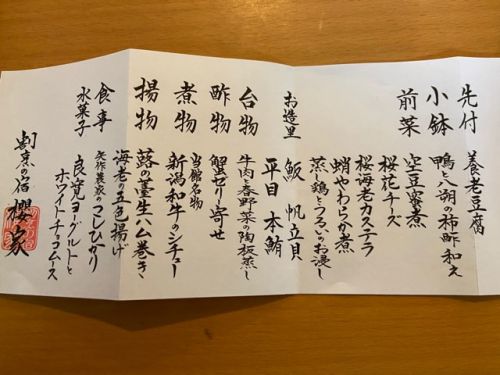 先付 養老豆腐
小鉢 鴨と八朔の柿酢和え
前菜 空豆蜜煮
桜花チーズ
桜海老カステラ
蛸やわらか煮
蒸し鶏とうるいのお浸し
お造里 魬 帆立貝
平目 本鮪
台物 牛肉と春野菜の陶板蒸し
酢物 蟹ゼリー寄せ
煮物 当館名物
新潟和牛のシチュー
揚物 蕗の薹生ハム巻き
海老の五色揚げ
食事 矢作農家のこしひかり
水菓子 良寛ヨーグルトと
ホワイトチョコムース
割烹の宿 櫻家